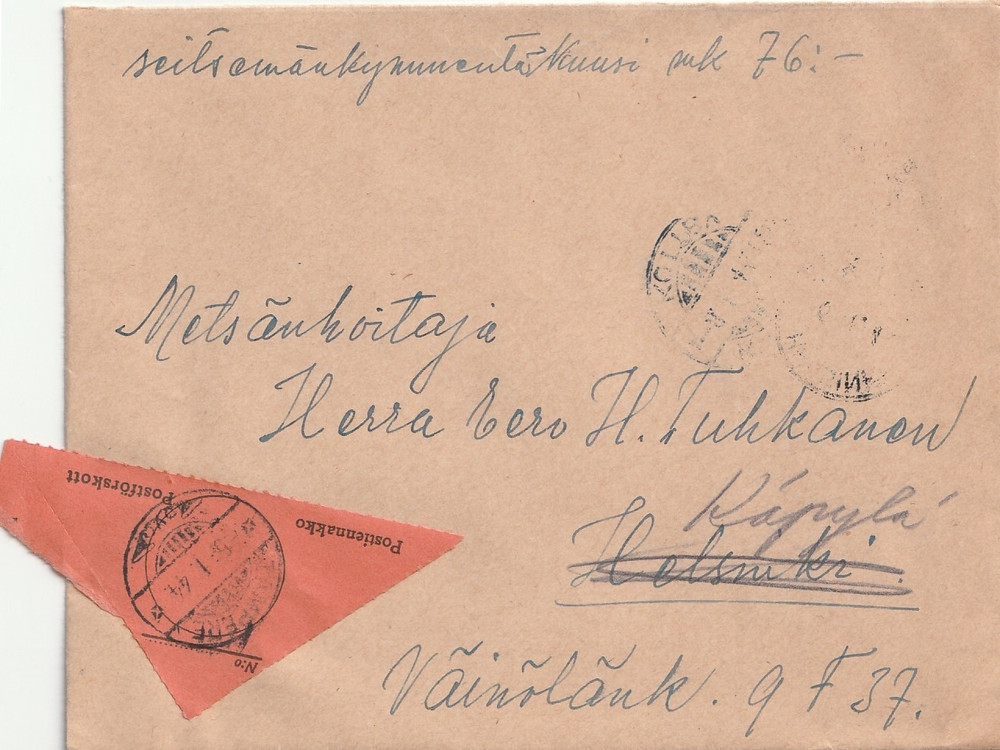 seitsemänkymmentäkuusi mk 76:-
Metsänhoitaja
Herra Eero H. Tuhkanen
Käpylä
Helsinki.
Väinölänk. 9 F 37.
Postiennakko
Postförskott
N:o